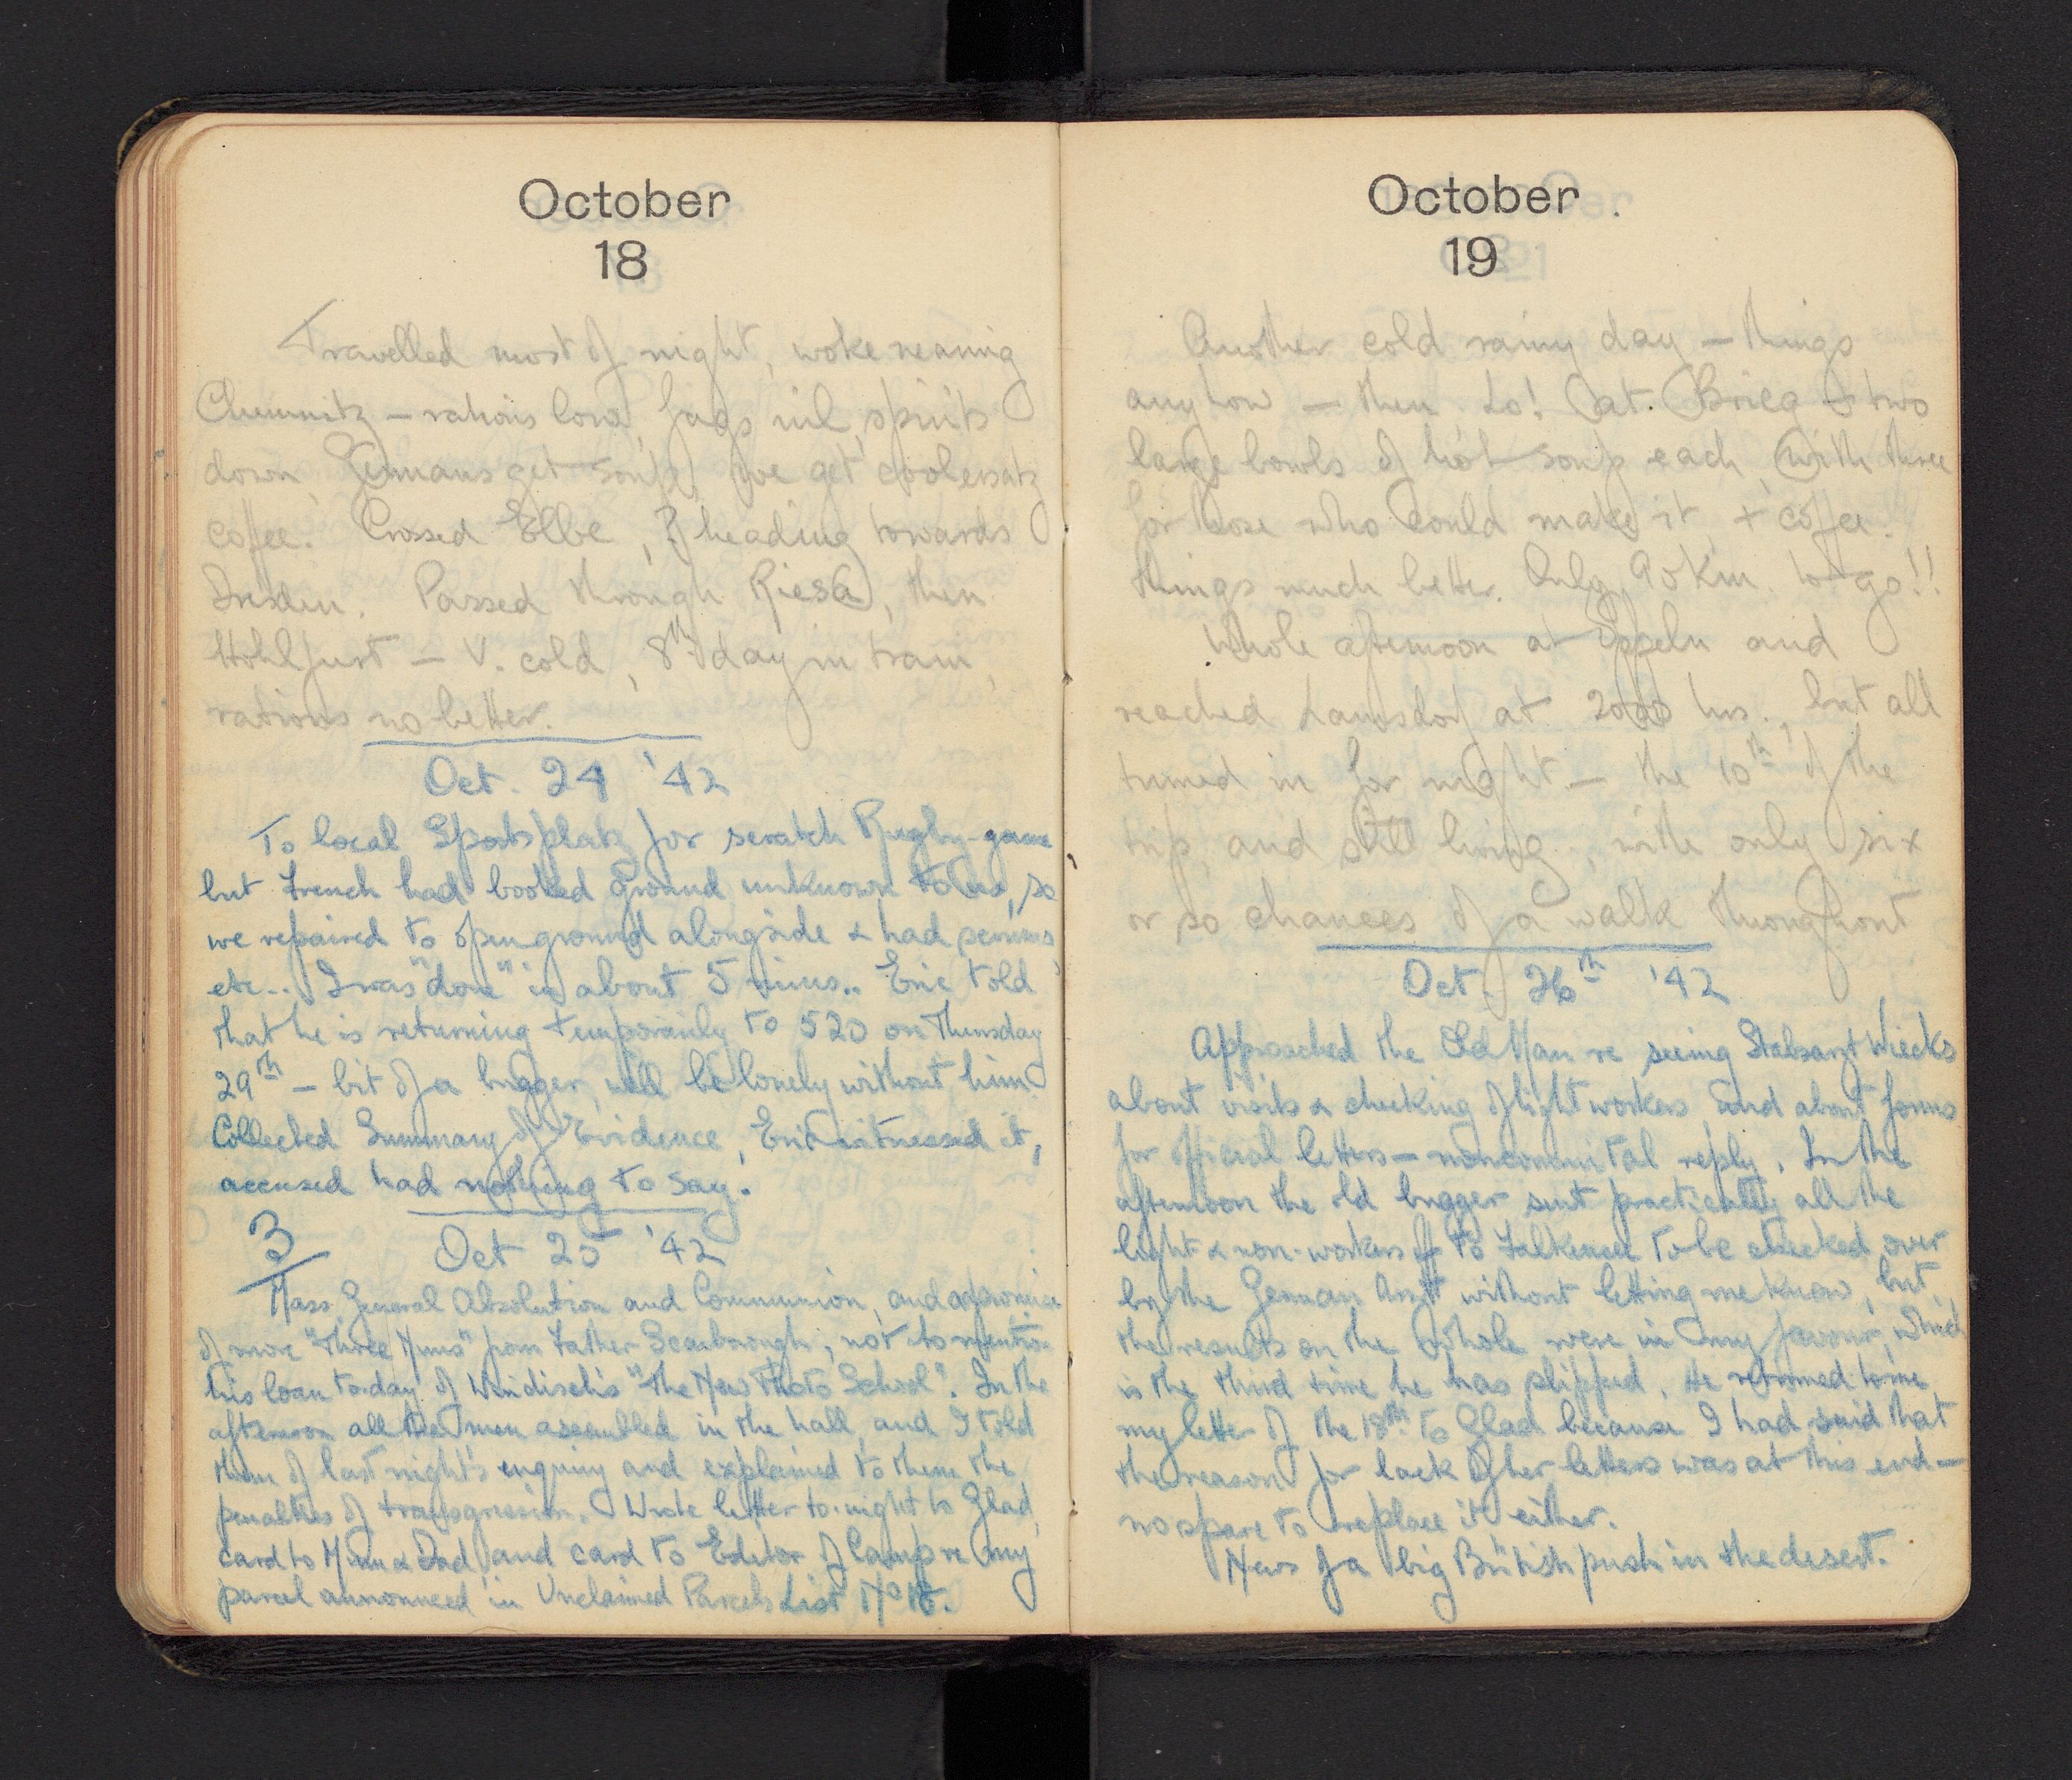 October
18
Travelled most of night, woke nearing
Chemnitz – rations low, fags nil, spirits
down, Germans get soup, we get
coffee. Crossed Elbe, ? heading towards
Dresden. Passed through Riesa, then
– V. cold, 8th day in train,
rations no better.
Oct. 24 '42
To local Sportsplatz for scratch Rugby-game
but French had booked ground unknown to us, so
we repaired to open ground alongside & had
etc.. I was "done" in about 5 mins.. Eric told
that he is returning temporarily to 520 on Thursday
29th – bit of a bugger, will be lonely without him.
Collected Summary of Evidence, Eric witnessed it,
accused had nothing to say.
3
Oct 25 '42
Mass, General Absolution and Communion, and a promise
of more "Three Nuns" from Father Scarborough, not to mention
his loan to-day of Windisch's "The New Photo School". In the
afternoon all the men assembled in the hall, and I told
them of last night's enquiry and explained to them the
penalties of transgression. Wrote letter to-night to Glad,
card to Mum & Dad, and card to Editor of Camp re my
parcel announced in Unclaimed Parcels List No
October
19
Another cold rainy day – things
anyhow – then Lo! at Brieg – two
large bowls of hot soup each, with three
for those who could make it, + coffee.
Things much better. Only 90 km. to go!!
Whole afternoon at Oppeln and
reached Lamsdorf at 2000 hrs., but all
turned in for night – the 10th of the
trip, and still living, with only six
or so chances of a walk throughout
Oct. 26th '42
Approached the Old Man re seeing Stabsarzt Wiecks
about visits & checking of light workers, and about forms
for official letters – noncommital reply. In the
afternoon the old bugger sent practically all the
light & non-workers off to to be checked over
by the German Arzt without letting me know, but
the results on the whole were in my favour, which
is the third time he has slipped. He returned to me
my letter of the 18th to Glad because I had said that
the reason for lack of her letters was at this end –
no spare to replace it either.
News of a big British push in the desert.